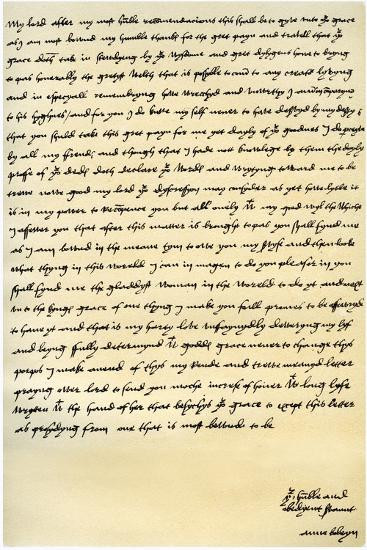 My lord after my most humble recommendacions this shall be to gyve unto yr grace
as I am most bownd my humble thanks for the gret payn and travell that yr
grace doth take in steudyeng by yr wysdome and gret dylygens howe to bryng
to pas honerably the gretyst welth that is possyble to come to any creatour lyvyng
and in especyall remembryng howe wretched and unwrothy I am in comparyng
to his hyghnes and for you I do knowe my self never to have deservyd by my desertys
that you shuld take this gret payn for me yet dayly of yr goodnes I do perceyve
by all my frends and though that I hade not knowlege by them the dayly
proffe of yr deds doth declare yr words and wrytyng toward me to be
trewe nowe good my lord yr dyscressyon may consyder as yet howe lytle it
is in my power to recompence you but all onely wt my good wyl the whiche
I assewer you that after this matter is brought to pas you shall fynd me
as I am bownd in the meane tym to owe you my servyse and then looke
what thyng in this woreld I can inmagen to do you pleasor in you
shall fynd me the gladdyst woman in the woreld to do yt and next
unto the kyngs grace of one thyng I make you full promes to be assewryd
to have yt and that is my harty love unfaynydly deweryng my lyf
and beyng fully determynd wt goddes grace never to change thys
porpos I make anend of thys my reude and trewe meanyd letter
prayng ower lord to send you moche increse of honer wt long lyfe
wrytten wt the hand of her that besychys yr grace to except this letter
as prosydyng from one that is most bownd to be
yr humble and
obedyent servant
anne boleyn